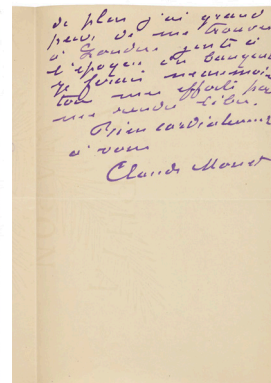 de plus j'ai grand
peur de me trouver
à Londres juste à
l'époque du banquet
je ferai néanmoins
tous mes efforts pour
me rendre libre.
Bien cordialement
à vous
Claude Monet